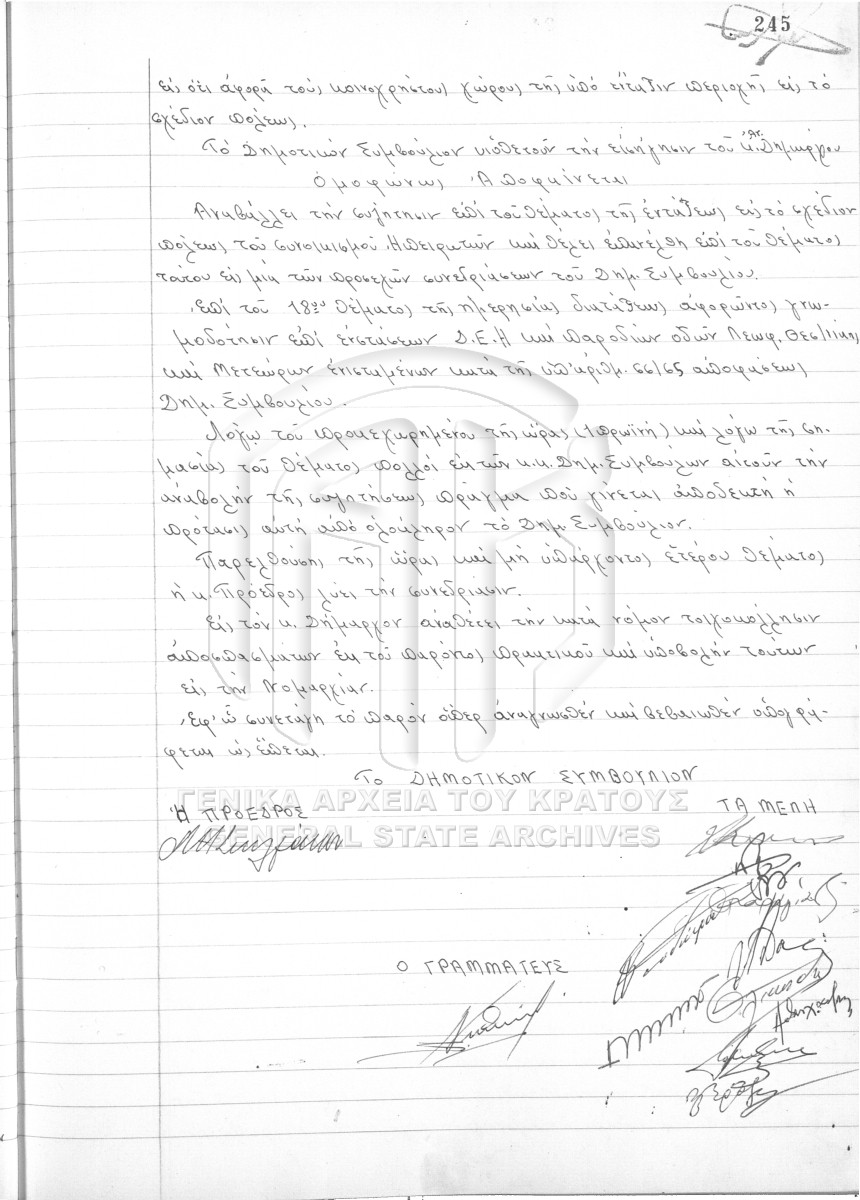 245
εἰς ὅτι ἀφορᾷ τούς κοινοχρήστους χώρους τῆς ὑπό ἔνταξιν περιοχῆς εἰς τό
σχέδιον πόλεως.
Τό Δημοτικόν Συμβούλιον υἱοθετοῦν τήν εἰσήγησιν τοῦ κ. Δημάρχου
Ὁμοφώνως Ἀποφαίνεται
Ἀναβάλλει τήν συζήτησιν ἐπί τοῦ θέματος τῆς ἐντάξεως εἰς τό σχέδιον
πόλεως τοῦ συνοικισμοῦ Ἠπειρωτῶν καί θέλει ἐπανέλθη ἐπί τοῦ θέματος
τούτου εἰς μία τῶν προσεχῶν συνεδριάσεων τοῦ Δημ. Συμβουλίου.
Ἐπί τοῦ 18ου θέματος τῆς ἡμερησίας διατάξεως ἀφορῶντος γνω-
μοδότησιν ἐπί ἐνστάσεων Δ.Ε.Η καί παροδίων ὁδῶν Λεωφ. Θεσ/νίκης
καί Μετεώρων ἐνισταμένων κατά τῆς ὑπ' ἀριθμ. 66/65 ἀποφάσεως
Δημ. Συμβουλίου.
Λόγῳ τοῦ προκεχωρημένου τῆς ὥρας (1 πρωϊνή) καί λόγῳ τῆς ση-
μασίας τοῦ θέματος πολλοί ἐκ τῶν κ.κ. Δημ. Συμβούλων αἰτοῦν τήν
ἀναβολήν τῆς συζητήσεως πρᾶγμα πού γίνεται ἀποδεκτή ἡ
πρότασις αὐτή ἀπό ὁλόκληρον τό Δημ. Συμβούλιον.
Παρελθούσης τῆς ὥρας καί μή ὑπάρχοντος ἑτέρου θέματος
ἡ κ. Πρόεδρος λύει τήν συνεδρίασιν.
Εἰς τόν κ. Δήμαρχον ἀναθέτει τήν κατά νόμον τοιχοκόλλησιν
ἀποσπασμάτων ἐκ τοῦ παρόντος πρακτικοῦ καί ὑποβολήν τούτων
εἰς τήν Νομαρχίαν.
Ἐφ' ᾧ συνετάγη τό παρόν ὅπερ ἀναγνωσθέν καί βεβαιωθέν ὑπογρά-
φεται ὡς ἕπεται.
ΤΟ ΔΗΜΟΤΙΚΟΝ ΣΥΜΒΟΥΛΙΟΝ
Ἡ ΠΡΟΕΔΡΟΣ ΤΑ ΜΕΛΗ
ΓΕΝΙΚΑ ΑΡΧΕΙΑ ΤΟΥ ΚΡΑΤΟΥΣ
GENERAL STATE ARCHIVES
Ο ΓΡΑΜΜΑΤΕΥΣ